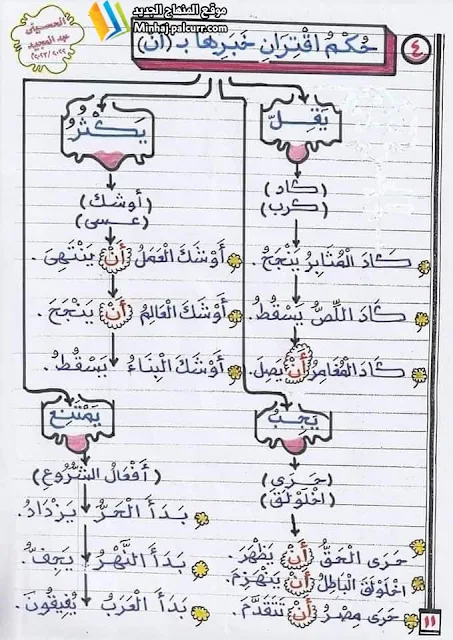 موقع المنهاج الجديد
Minhaj.palcurr.com
الحسيني
عبد المجيد
٤
حُكْمُ اقْتِرَانِ خَبَرِهَا بـ (أَنْ)
يَقِلّ
(كاد)
(كرب)
كَادَ الْمُثَابِرُ يَنْجَحُ.
كَادَ اللِّصُّ يَسْقُطُ.
كَادَ الْمُغَامِرُ أَنْ يَصِلَ.
يَكْثُرُ
(أوشك)
(عسى)
أَوْشَكَ الْعَمَلُ أَنْ يَنْتَهِىَ.
أَوْشَكَ الْعَالِمُ أَنْ يَنْجَحَ.
أَوْشَكَ الْبِنَاءُ يَسْقُطُ.
يَجِبُ
(حَرَى)
(اخْلَوْلَقَ)
حَرَى الْحَقُّ أَنْ يَظْهَرَ.
اخْلَوْلَقَ الْبَاطِلُ أَنْ يَنْهَزِمَ.
حَرَى مِصْرُ أَنْ تَتَقَدَّمَ.
يَمْتَنِع
(أَفْعَالُ الشُّرُوعِ)
بَدَأَ الْحَرُّ يَزْدَادُ.
بَدَأَ النَّهْرُ يَجِفُّ.
بَدَأَ الْعَرَبُ يُفِيقُونَ.
١١